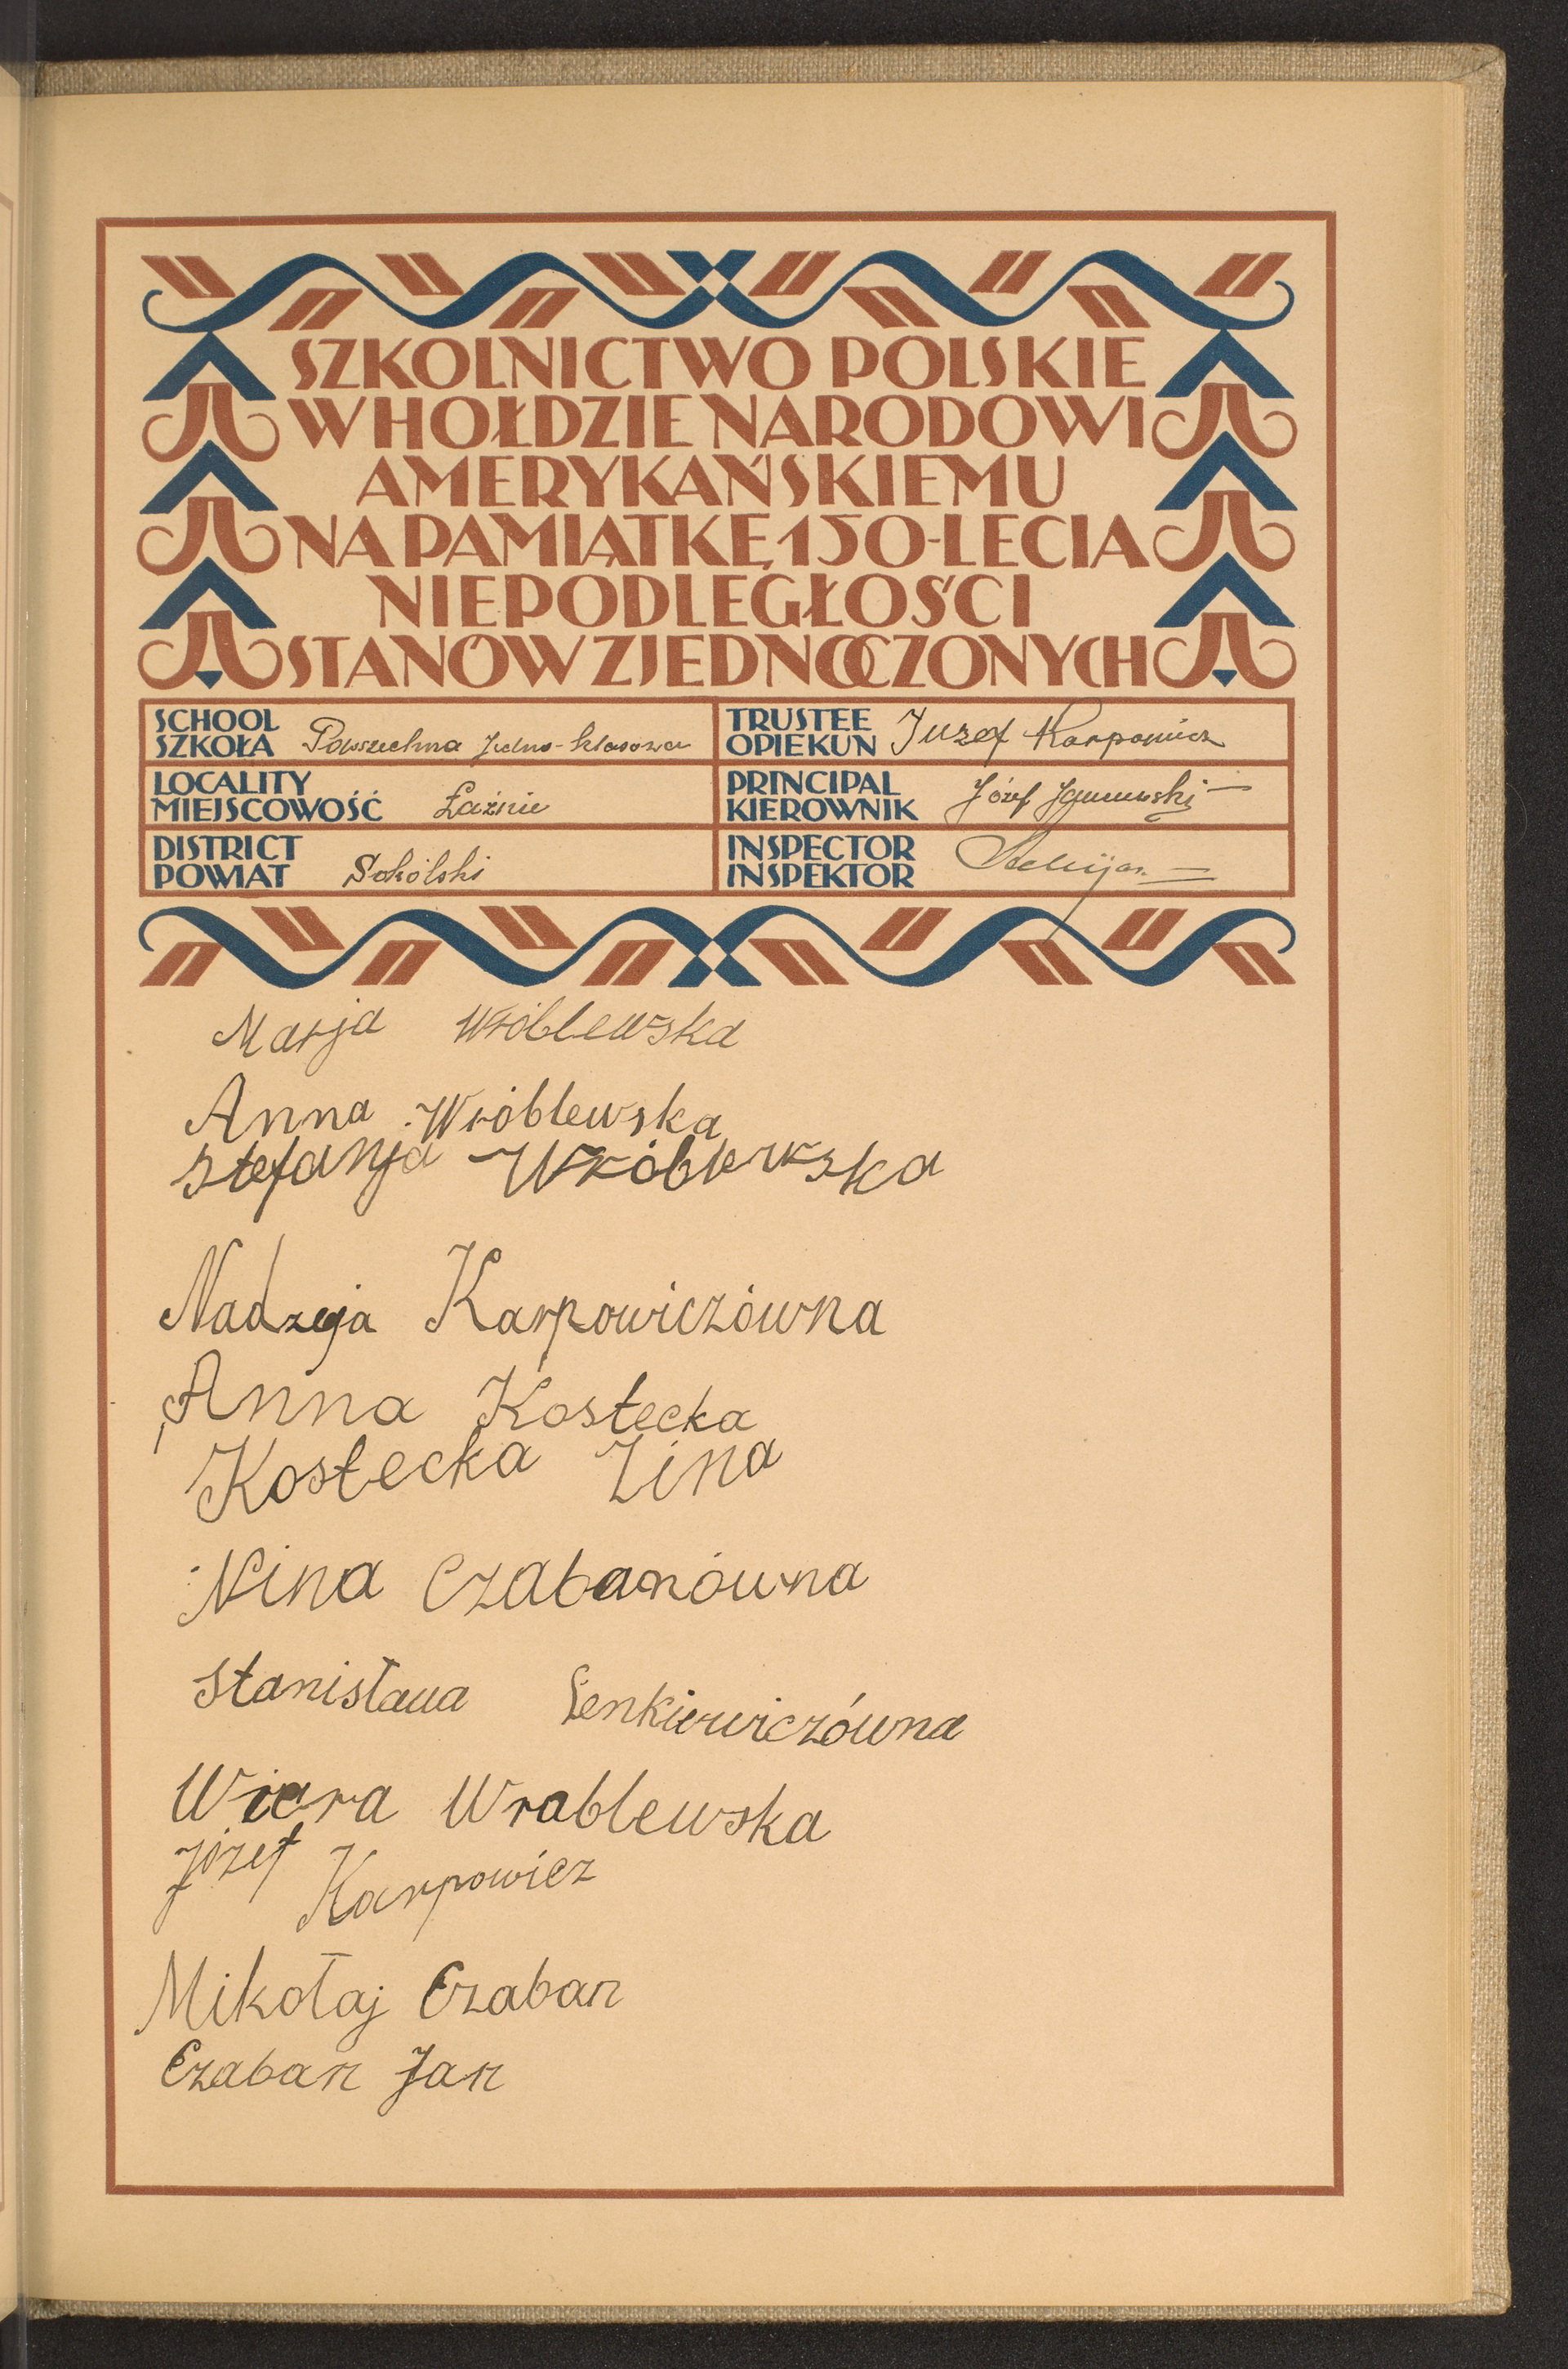 SZKOLNICTWO POLSKIE
W HOŁDZIE NARODOWI
AMERYKAŃSKIEMU
NA PAMIĄTKĘ 150-LECIA
NIEPODLEGŁOŚCI
STANÓW ZJEDNOCZONYCH
SCHOOL
SZKOŁA Powszechna Jedno-klasowa
TRUSTEE
OPIEKUN Juzef Karpowicz
LOCALITY
MIEJSCOWOŚĆ Łaźnie
PRINCIPAL
KIEROWNIK Józef
DISTRICT
POWIAT Sokólski
INSPECTOR
INSPEKTOR
Marja Wróblewska
Anna Wróblewska
Stefanja Wróblewska
Nadzeja Karpowiczówna
Anna Kostecka
Kostecka Zina
Nina Czabanówna
Stanisława Senkiewiczówna
Wiera Wrablewska
Józef Karpowicz
Mikołaj Czaban
Czaban Jan